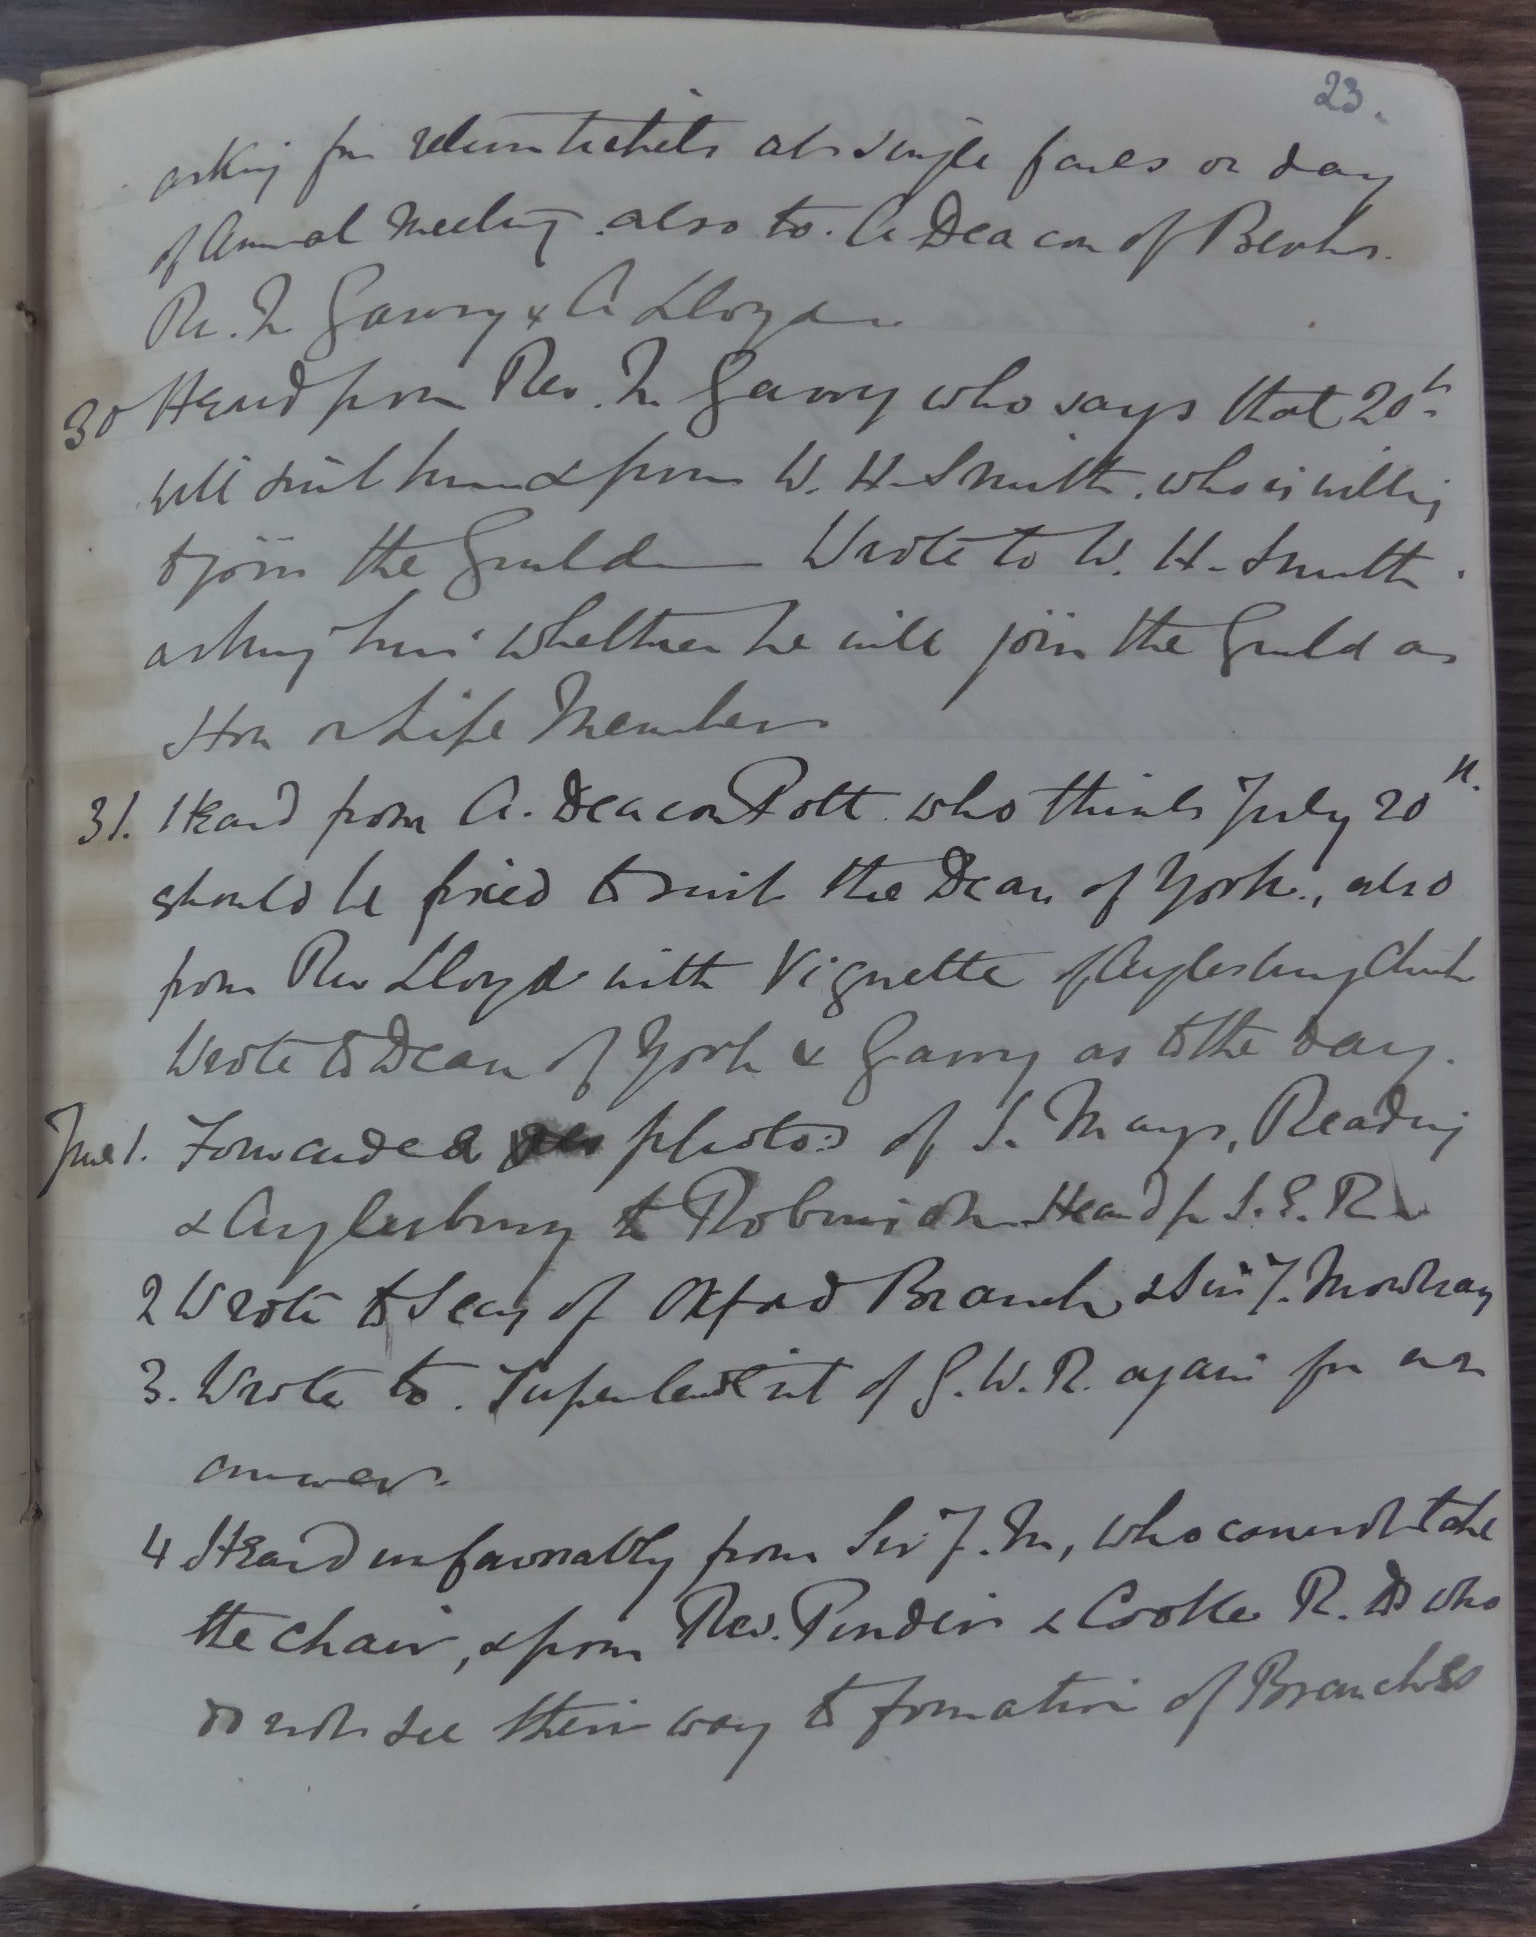 23.
asking for return tickets at single fares on day
of Annual Meeting also to A. Deacon of Berks.
Rev. N. Garry & A Lloyd.
30 Heard from Rev. N. Garry who says that 20th
will suit him & from W. H. Smith. who is willing
to join the Guild Wrote to W. H. Smith.
asking him whether he will join the Guild as
Hon or Life Member
31. Heard from A. Deacon Pott. who thinks July 20th.
should be fixed to suit the Dean of York, also
from Rev Lloyd with Vignette of Aylesbury Church
Wrote to Dean of York & Garry as to the day.
June 1. Forwarded photos of S. Marys, Reading
& Aylesbury to Robinson Heard fr S. E. R
2 Wrote to Secy of Oxford Branch & Sir J. Mowbray
3. Wrote to Superintendent of G. W. R. again for an
answer.
4 Heard unfavorably from Sir J. M, who cannot take
the chair, & from Rev. Pinder & Cooke R. D who
do not see their way to formation of Branches